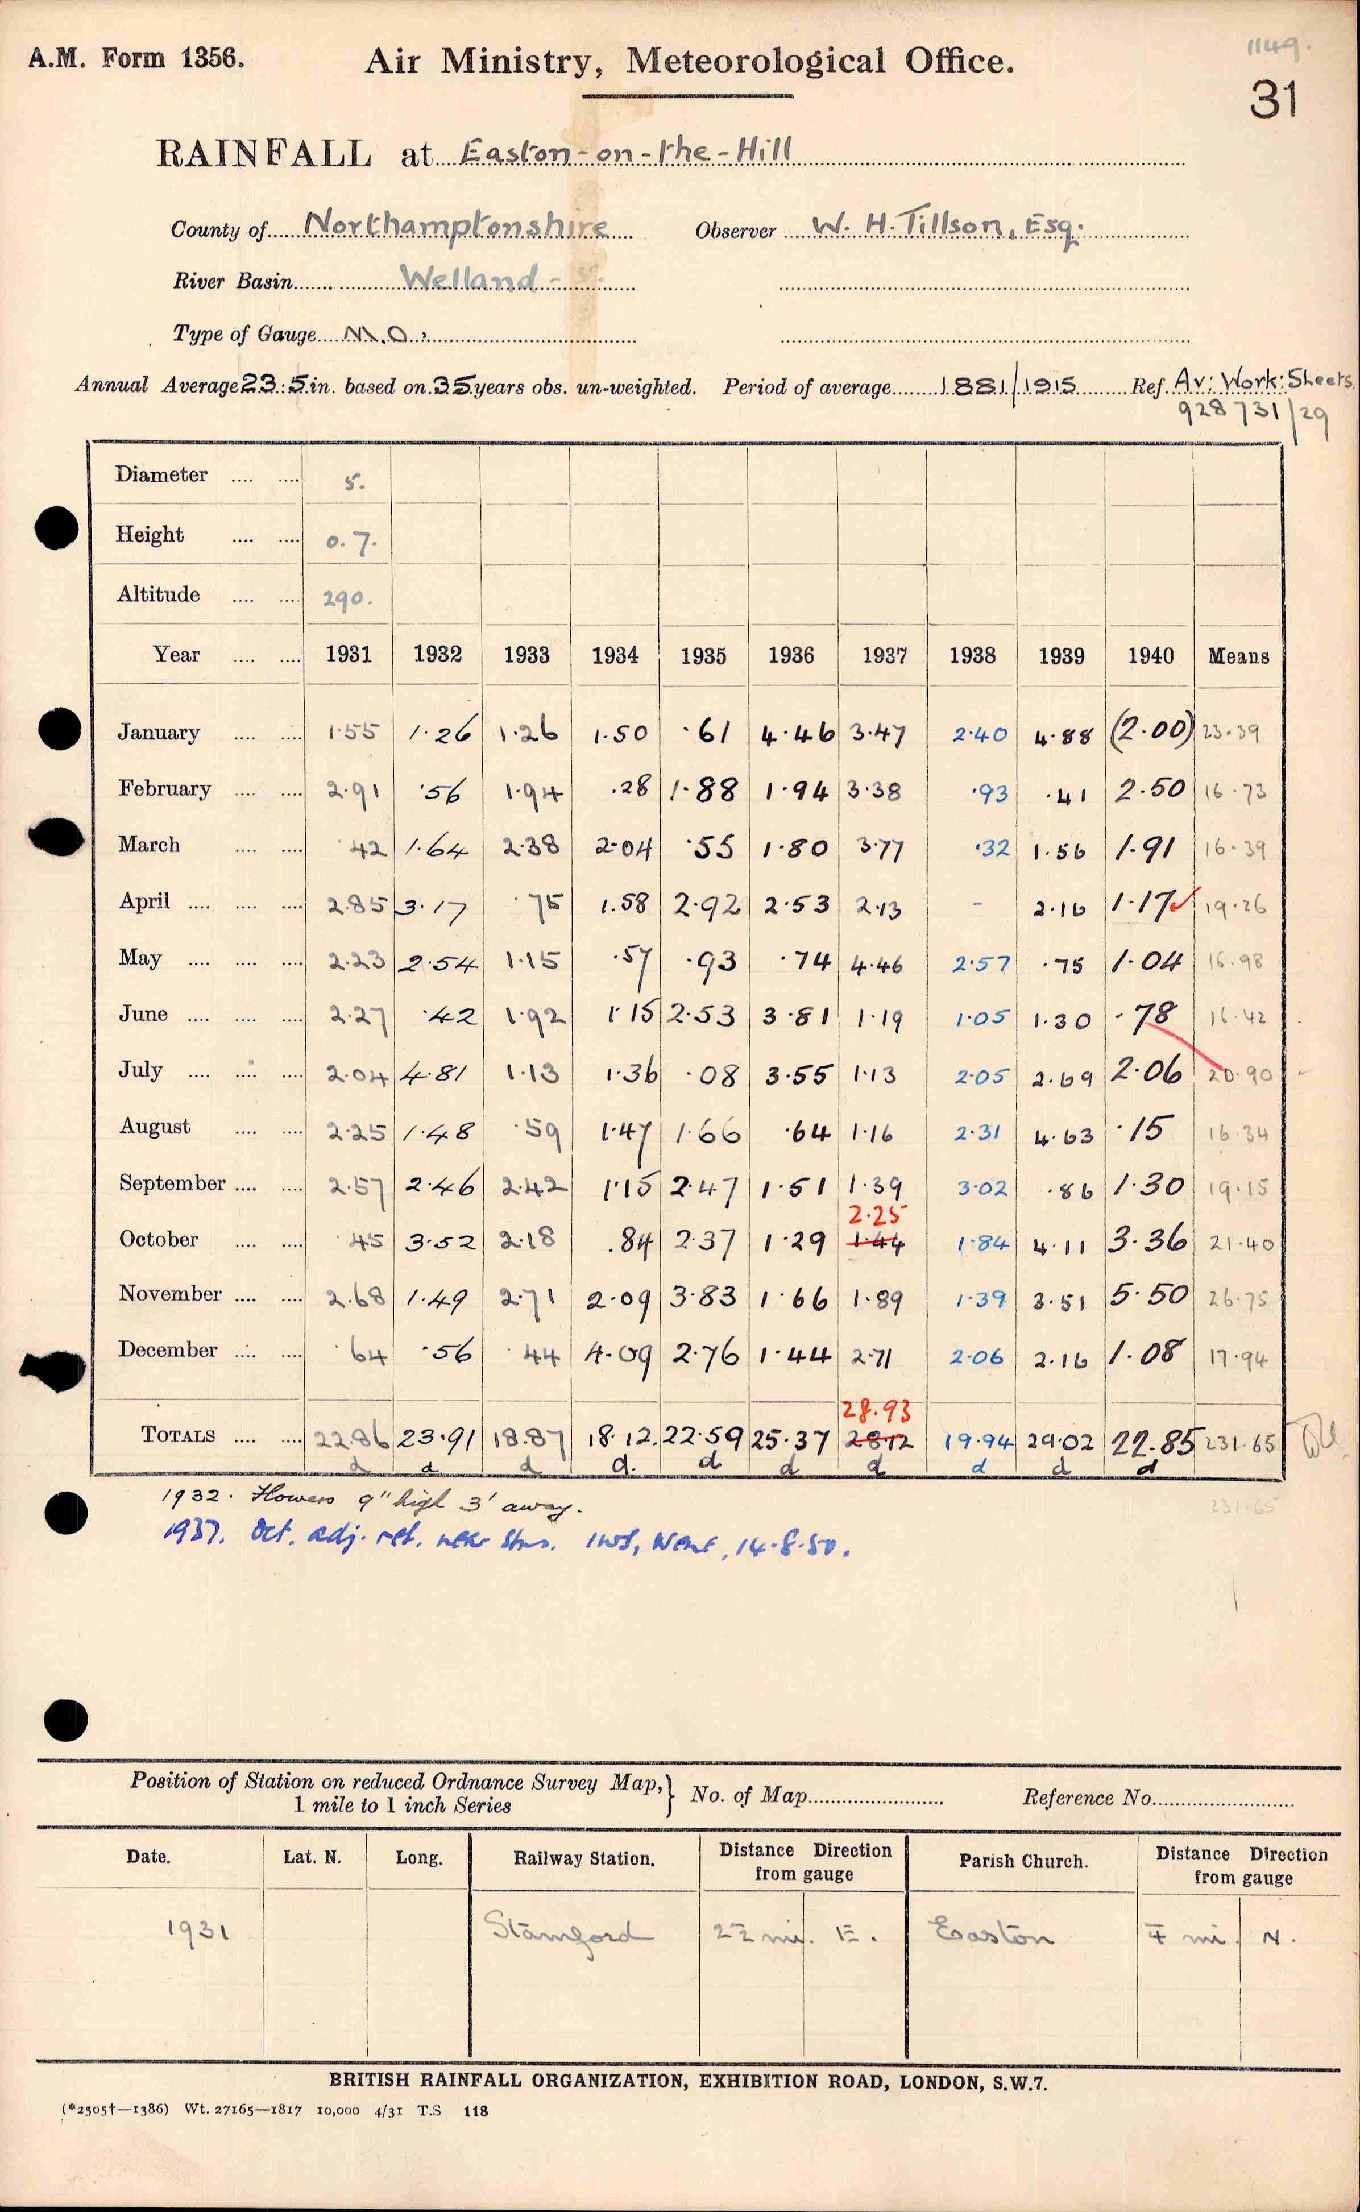 1149.
A.M. Form 1356. Air Ministry, Meteorological Office.
31
RAINFALL at Easton-on-the-Hill
County of Northamptonshire Observer W. H. Tillson, Esq.
River Basin Welland
Type of Gauge M.O.
Annual Average 23.5 in. based on 35 years obs. un-weighted. Period of average 1881/1915 Ref. Av: Work: Sheets
928731/29
Diameter 5.
Height 0.7.
Altitude 290.
Year 1931 1932 1933 1934 1935 1936 1937 1938 1939 1940 Means
January 1.55 1.26 1.26 1.50 .61 4.46 3.47 2.40 4.88 (2.00) 23.39
February 2.91 .56 1.94 .28 1.88 1.94 3.38 .93 .41 2.50 16.73
March .42 1.64 2.38 2.04 .55 1.80 3.77 .32 1.56 1.91 16.39
April 2.85 3.17 .75 1.58 2.92 2.53 2.13 - 2.16 1.17✓ 19.26
May 2.23 2.54 1.15 .57 .93 .74 4.46 2.57 .75 1.04 16.98
June 2.27 .42 1.92 1.15 2.53 3.81 1.19 1.05 1.30 .78 16.42
July 2.04 4.81 1.13 1.36 .08 3.55 1.13 2.05 2.69 2.06 20.90
August 2.25 1.48 .59 1.47 1.66 .64 1.16 2.31 4.63 .15 16.34
September 2.57 2.46 2.42 1.15 2.47 1.51 1.39 3.02 .86 1.30 19.15
2.25
October .45 3.52 2.18 .84 2.37 1.29 1.44 1.84 4.11 3.36 21.40
November 2.68 1.49 2.71 2.09 3.83 1.66 1.89 1.39 3.51 5.50 26.75
December .64 .56 .44 4.09 2.76 1.44 2.71 2.06 2.16 1.08 17.94
28.93
TOTALS 22.86 23.91 18.87 18.12. 22.59 25.37 28.12 19.94 29.02 22.85 231.65
d d d d. d d d d d d
1932. Flowers 9" high 3' away.
231.65
1937. Oct. adj. ref. near stns. 14.8.50.
Position of Station on reduced Ordnance Survey Map,} No. of Map Reference No.
1 mile to 1 inch Series
Date. Lat. N. Long. Railway Station. Distance Direction from gauge Parish Church. Distance Direction from gauge
1931 Stamford 2½ mi. E. Easton ¼ mi. N.
BRITISH RAINFALL ORGANIZATION, EXHIBITION ROAD, LONDON, S.W.7.
(*2505†—1386) Wt. 27165—1817 10,000 4/31 T.S 118